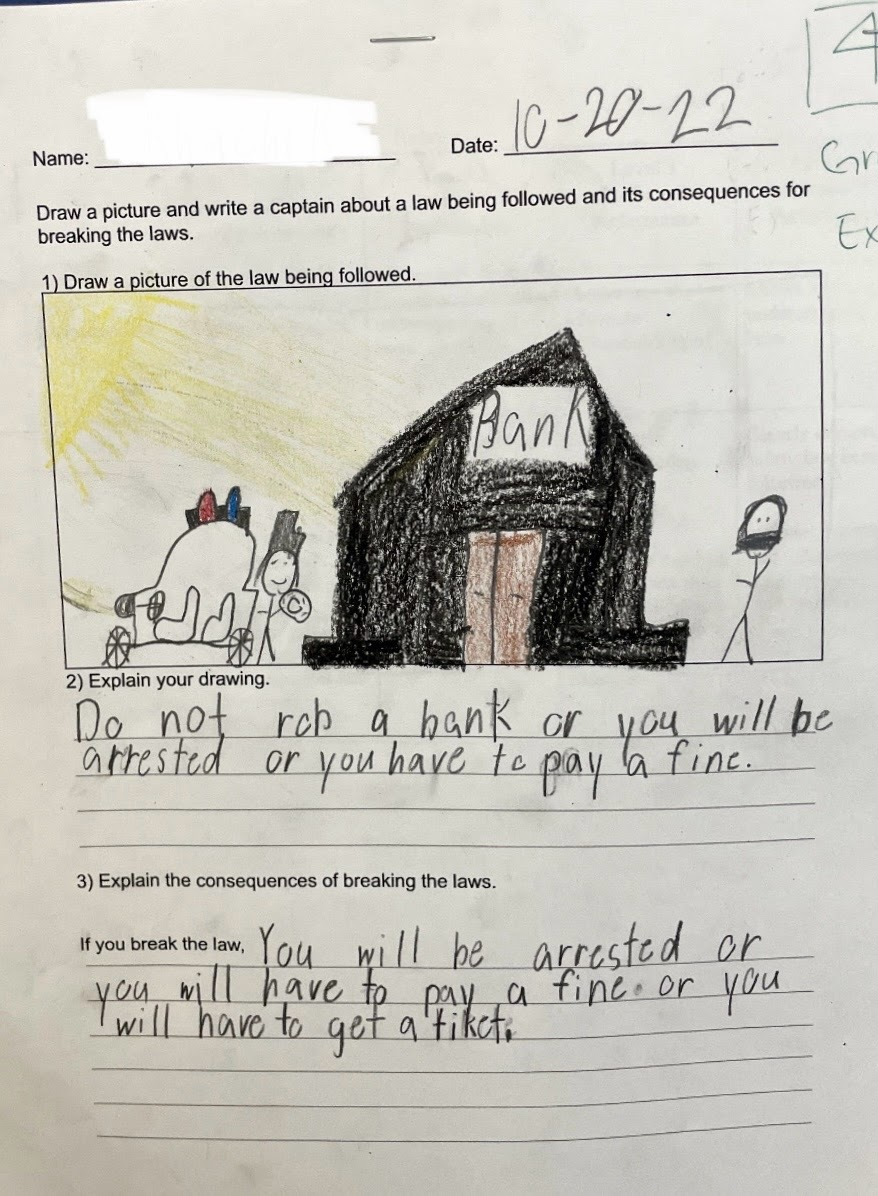 4
Name:
Date: 10-20-22
Gr
Ex
Draw a picture and write a captain about a law being followed and its consequences for
breaking the laws.
1) Draw a picture of the law being followed.
Bank
2) Explain your drawing.
Do not rob a bank or you will be
arrested or you have to pay a fine.
3) Explain the consequences of breaking the laws.
If you break the law, You will be arrested or
you will have to pay a fine. or you
will have to get a tiket.